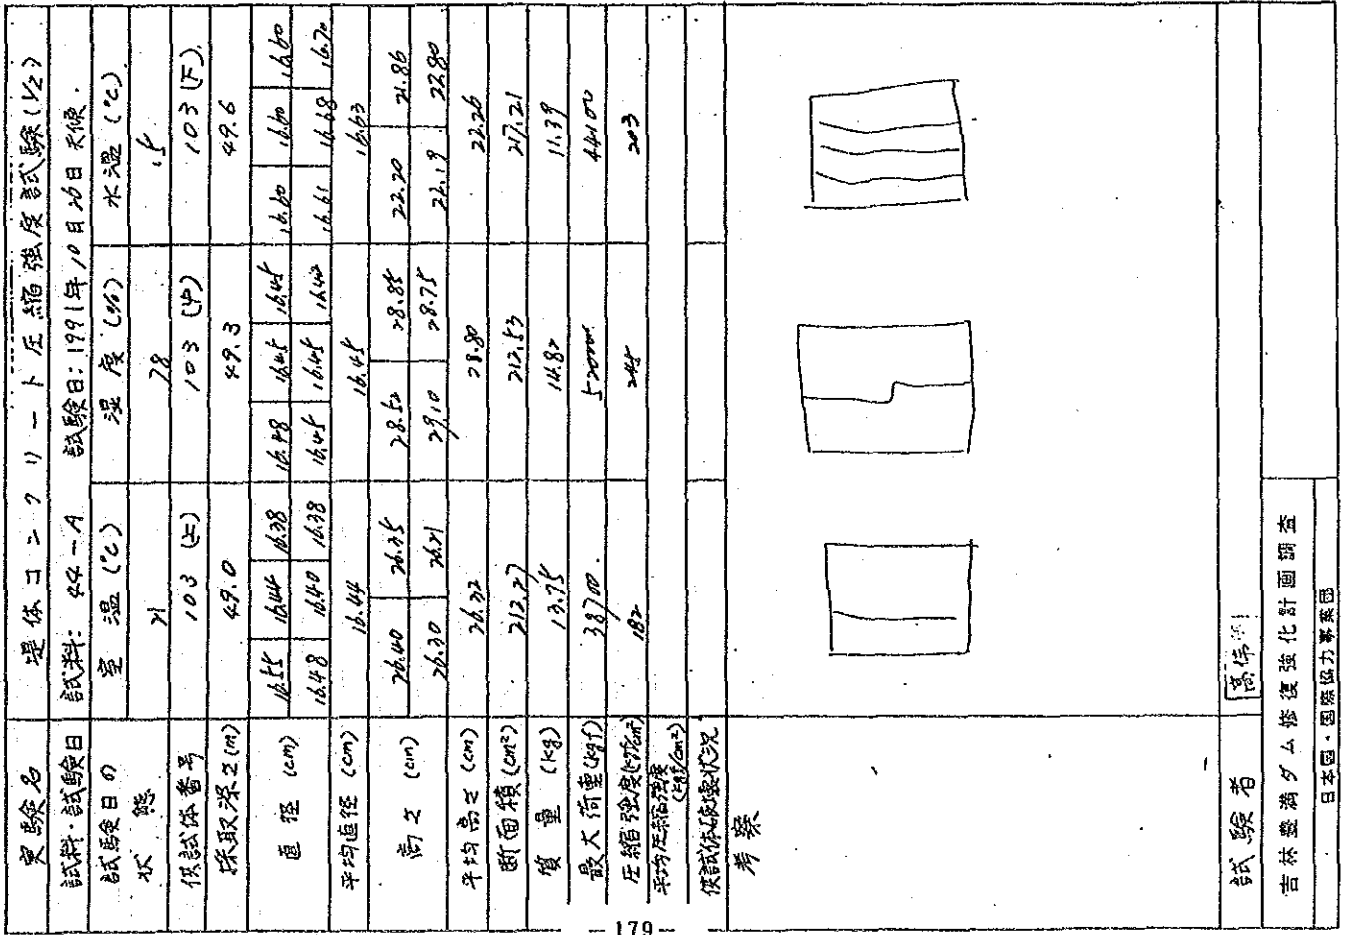 実験名 堤体コンクリート圧縮強度試験(1/2)
試料・試験日 試料: 44-A 試験日: 1991年10月26日 天候.
試験日の状態 室温(℃) 湿度(%) 水温(℃)
21 78 15
供試体番号 103(上) 103(中) 103(下)
採取深さ(m) 49.0 49.3 49.6
直径(cm) 16.55 16.44 16.38 16.48 16.45 16.45 16.60 16.60 16.60
16.48 16.40 16.38 16.45 16.45 16.42 16.61 16.68 16.70
平均直径(cm) 16.44 16.45 16.63
高さ(cm) 26.40 26.35 28.52 28.85 22.20 21.86
26.30 26.21 29.10 28.75 22.19 22.80
平均高さ(cm) 26.32 28.80 22.26
断面積(cm²) 212.27 212.53 217.21
質量(kg) 13.75 14.82 11.39
最大荷重(kgf) 38700. 52000 44100
圧縮強度(kgf/cm²) 182 245 203
平均圧縮強度(kgf/cm²)
供試体破壊状況
考察
試験者 高
吉林豊満ダム修復強化計画調査
日本国・国際協力事業団
-179-